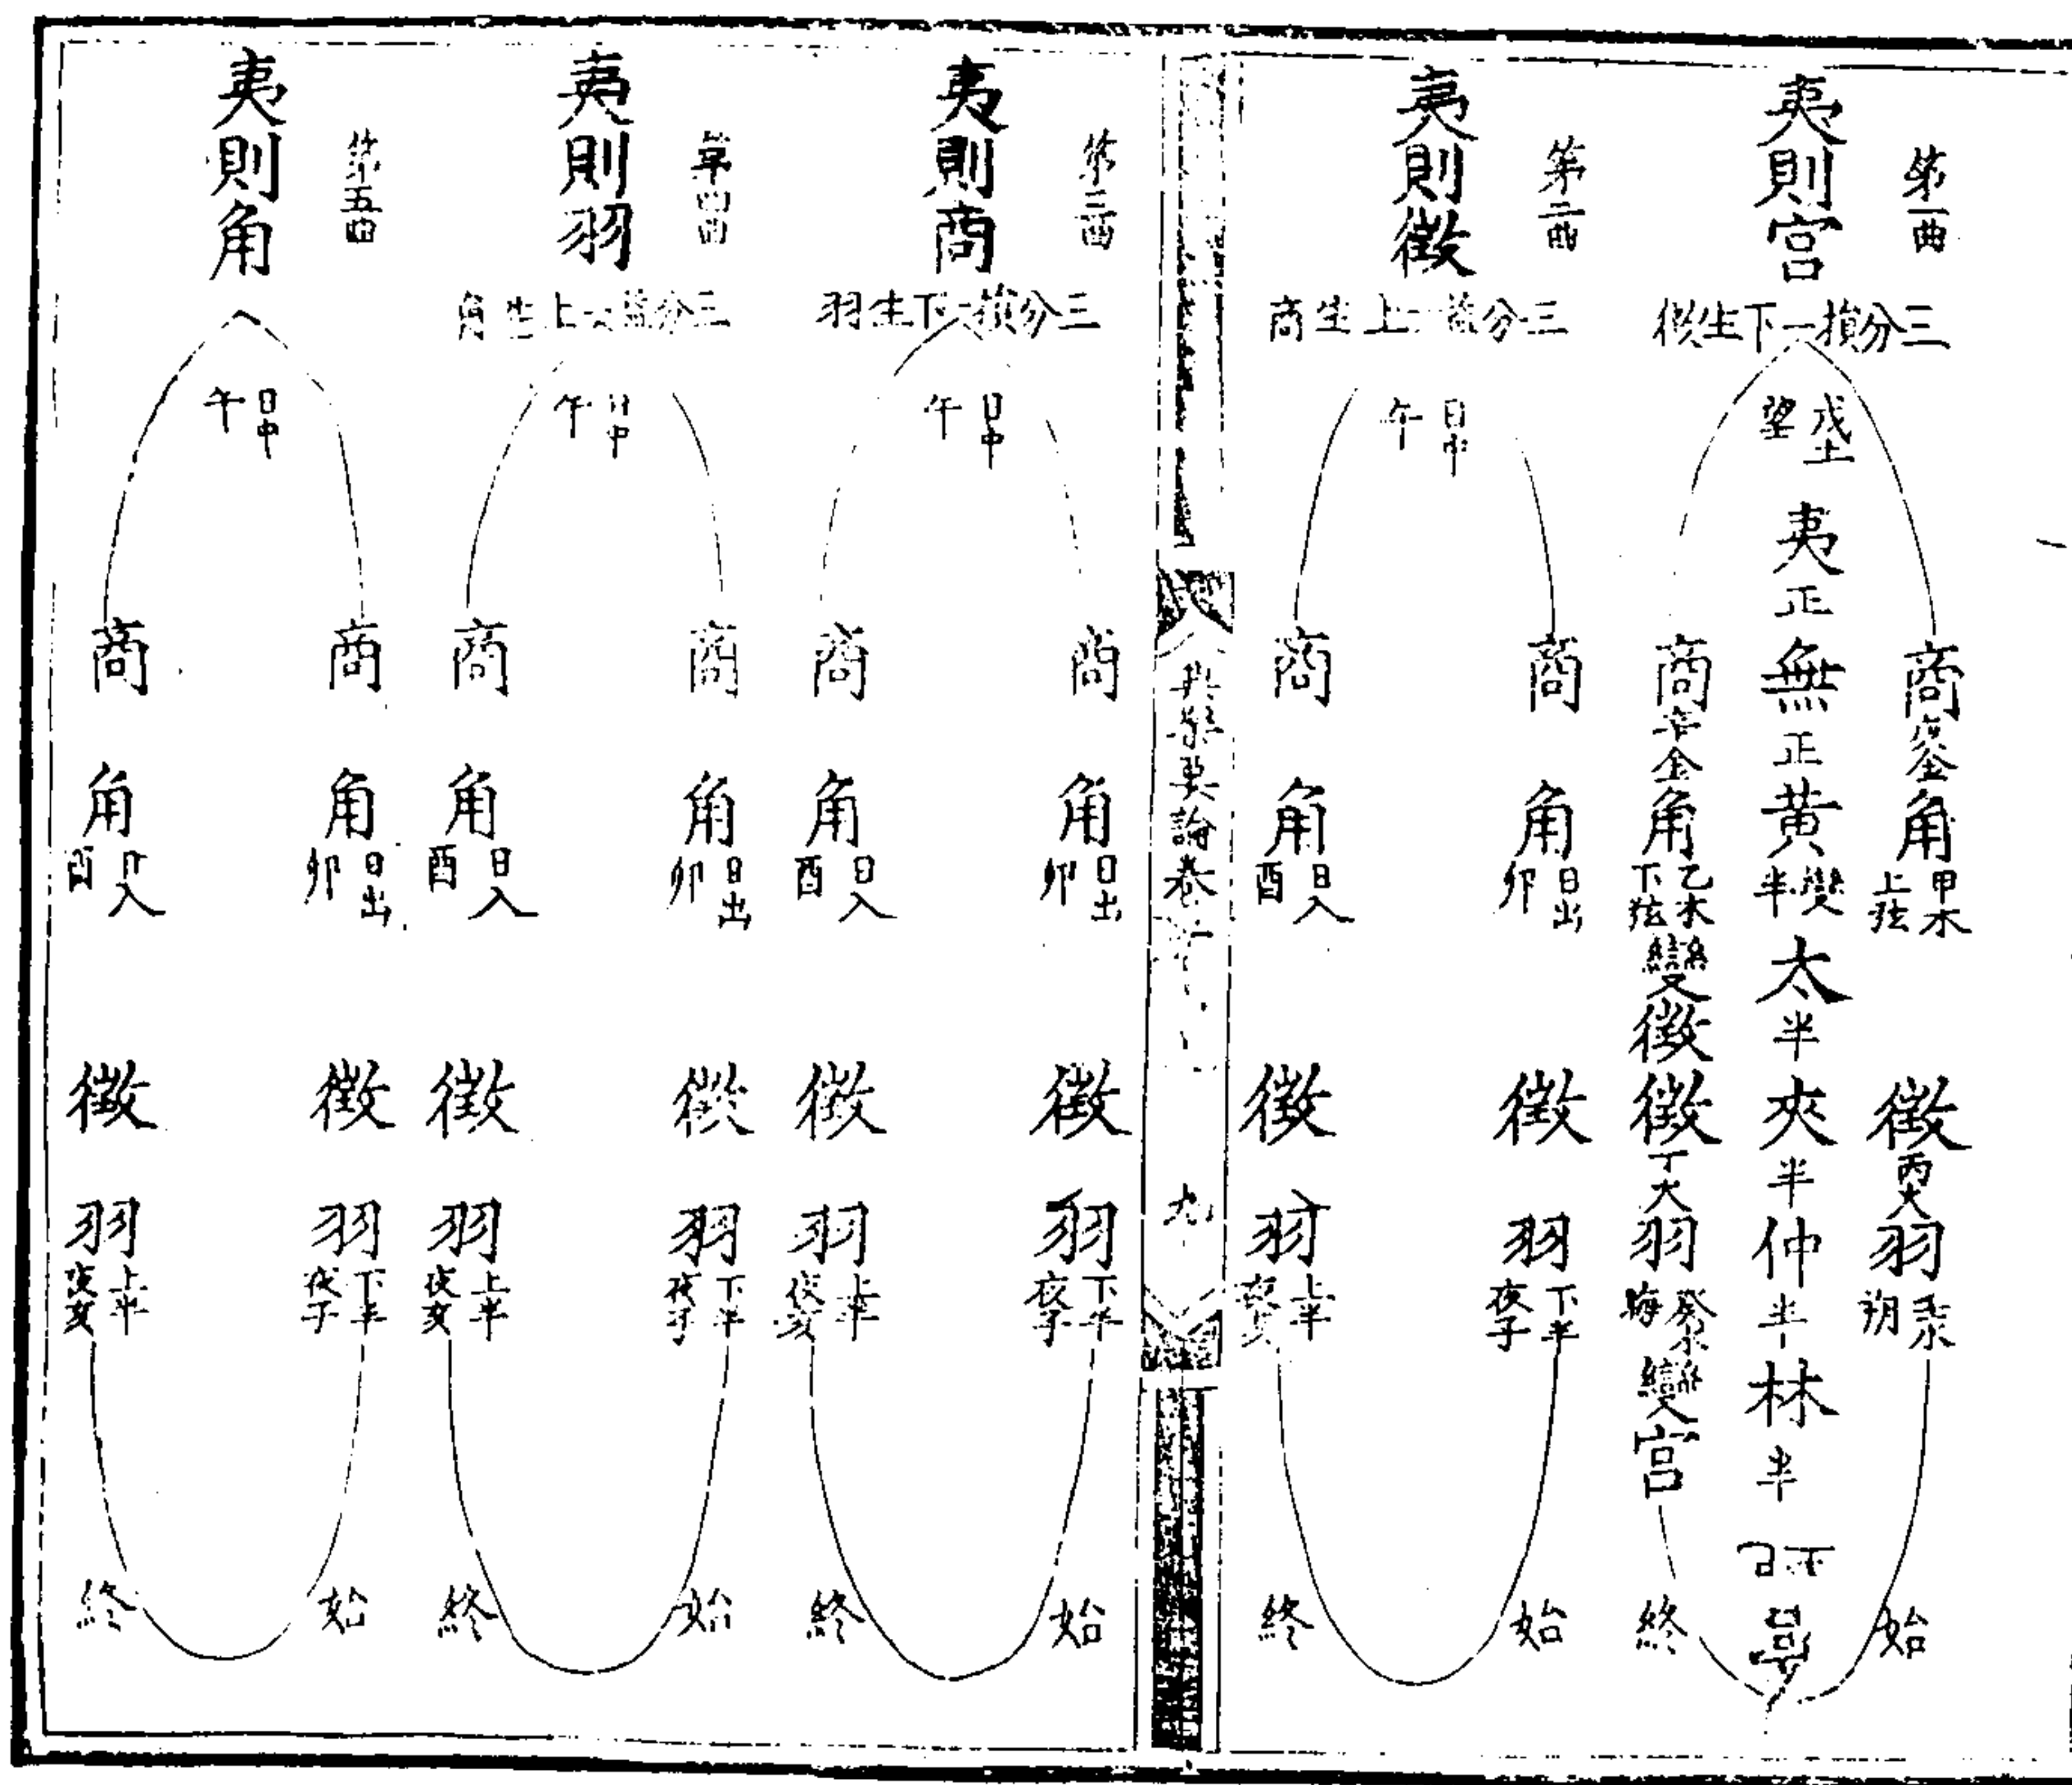 第一曲
夷則宮
三分損一下生徵
戊土
望
商庚金角
甲木
上弦
徵丙火羽
壬水
朔
始
夷正無正黃
變半
太半夾半仲半林半
商辛金角
乙木
下弦
變徵徵丁火羽
癸水
晦
變宮
終
第二曲
夷則徵
三分益一上生商
日中
午
商
角
日出
卯
徵
羽
下半
夜子
始
商
角
日入
酉
徵
羽
上半
夜亥
終
樂要論卷
九
第三曲
夷則商
三分損一下生羽
日中
午
商
角
日出
卯
徵
羽
下半
夜子
始
商
角
日入
酉
徵
羽
上半
夜亥
終
第四曲
夷則羽
三分益一上生角
日中
午
商
角
日出
卯
徵
羽
下半
夜子
始
商
角
日入
酉
徵
羽
上半
夜亥
終
第五曲
夷則角
日中
午
商
角
日出
卯
徵
羽
下半
夜子
始
商
角
日入
酉
徵
羽
上半
夜亥
終